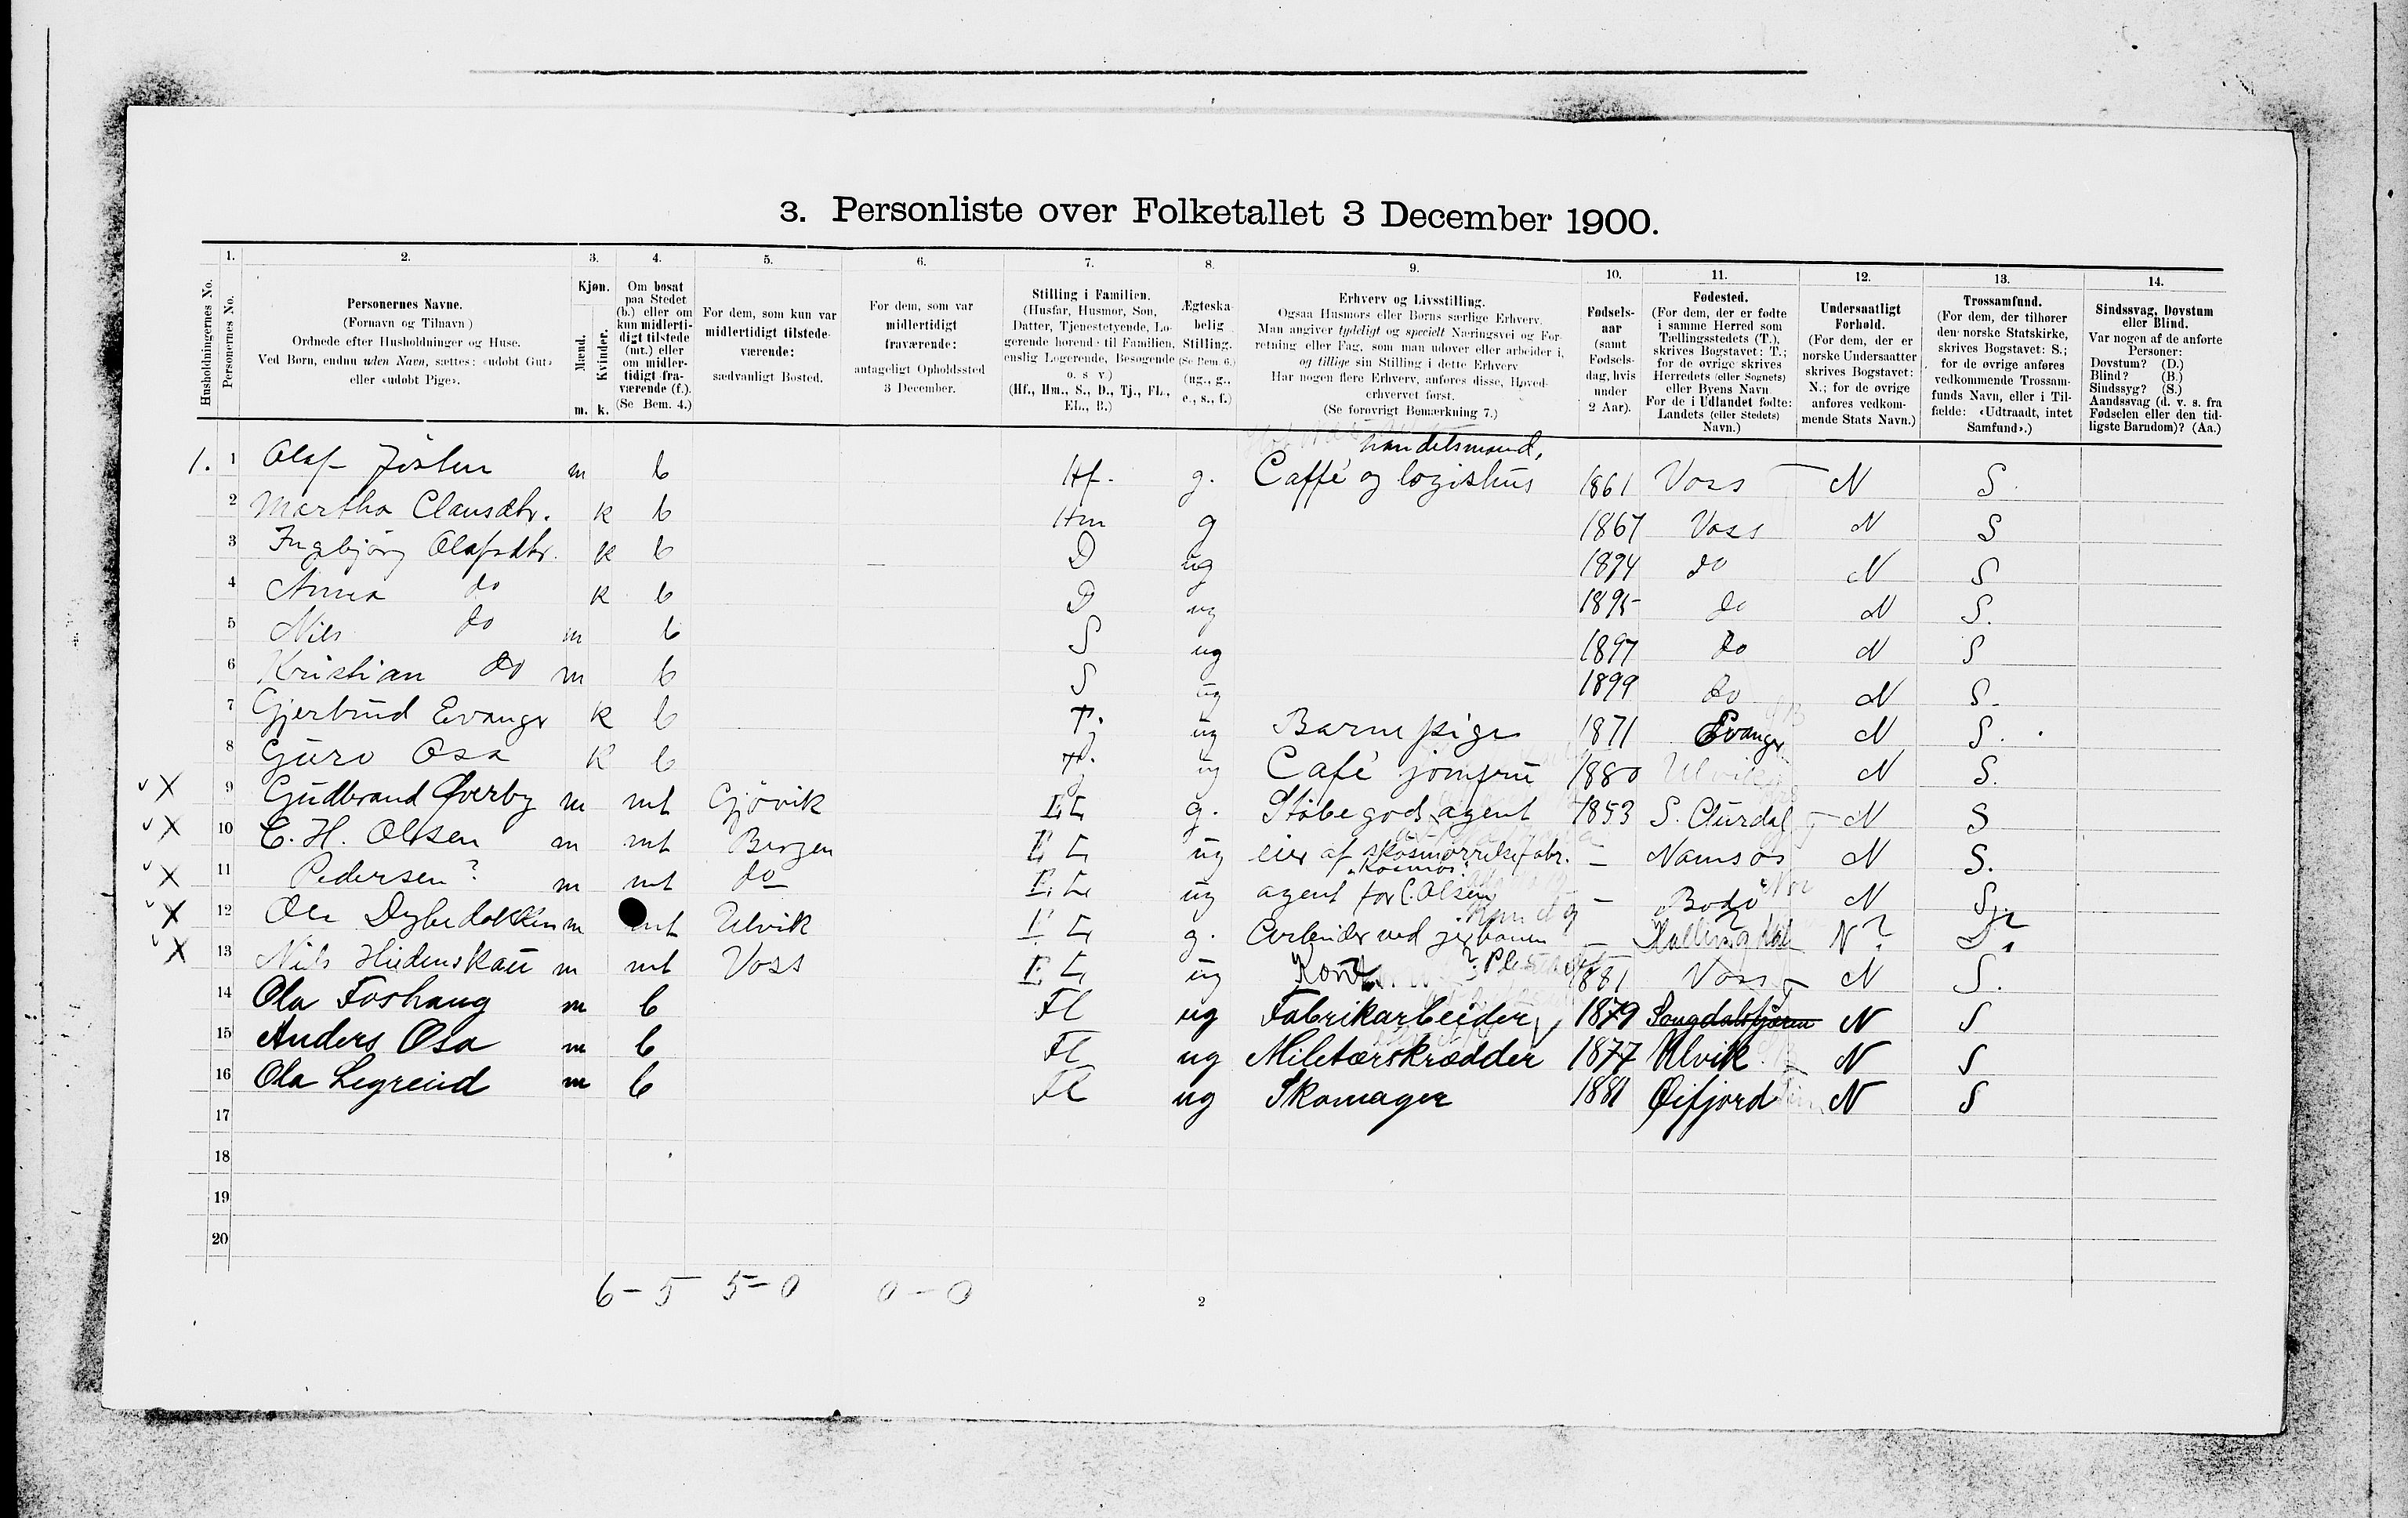 3. Personliste over Folketallet 3 December 1900.
1. 2. 3. 4. 5. 6. 7. 8. 9. 10. 11. 12. 13. 14.
Husholdningernes No.
Personernes No.
Personernes Navne.
(Fornavn og Tilnavn)
Ordnede efter Husholdninger og Huse.
Ved Børn, endnu uden Navn, sættes: «udøbt Gut»
eller «udøbt Pige».
Kjøn.
Mænd.
Kvinder.
m. k.
Om bosat
paa Stedet
(b.) eller om
kun midlerti-
digt tilstede
(mt.) eller
om midler-
tidigt fra-
værende (f.).
(Se Bem. 4.)
For dem, som kun var
midlertidigt tilstede-
værende:
sædvanligt Bosted.
For dem, som var
midlertidigt
fraværende:
antageligt Opholdssted
3 December.
Stilling i Familien.
(Husfar, Husmor, Søn,
Datter, Tjenestetyende, Lo-
gerende hørende til Familien,
enslig Logerende, Besøgende
o. s. v.)
(Hf., Hm., S., D., Tj., FL.,
EL., B.)
Ægteska-
belig
Stilling.
(Se Bem. 6.)
(ug., g.,
e., s., f.)
Erhverv og Livsstilling.
Ogsaa Husmors eller Børns særlige Erhverv.
Man angiver tydeligt og specielt Næringsvei og For-
retning eller Fag, som man udøver eller arbeider i,
og tillige sin Stilling i dette Erhverv
Har nogen flere Erhverv, anføres disse, Hoved-
erhvervet først.
(Se forøvrigt Bemærkning 7.)
Fødsels-
aar
(samt
Fødsels-
dag, hvis
under
2 Aar).
Fødested.
(For dem, der er fødte
i samme Herred som
Tællingsstedets (T.),
skrives Bogstavet: T.;
for de øvrige skrives
Herredets (eller Sognets)
eller Byens Navn
For de i Udlandet fødte:
Landets (eller Stedets)
Navn.)
Undersaatligt
Forhold.
(For dem, der er
norske Undersaatter
skrives Bogstavet:
N.; for de øvrige
anføres vedkom-
mende Stats Navn.)
Trossamfund.
(For dem, der tilhører
den norske Statskirke,
skrives Bogstavet: S.;
for de øvrige anføres
vedkommende Trossam-
funds Navn, eller i Til-
fælde: «Udtraadt, intet
Samfund».)
Sindssvag, Døvstum
eller Blind.
Var nogen af de anførte
Personer:
Døvstum? (D.)
Blind? (B.)
Sindssyg? (S.)
Aandssvag (d. v. s. fra
Fødselen eller den tid-
ligste Barndom)? (Aa.)
handelsmand,
1. 1 Olaf m b Hf. g. Caffé og logishus 1861 Voss N S.
2 Martha Clausdtr. k b Hm g 1867 Voss N S
3 Ingbjørg Olafsdtr. k b D ug 1894 do N S
4 Anna do k b D ug 1895 do N S.
5 Nils do m b S ug 1897 do N S
6 Kristian do m b S ug 1899 do N S.
7 Gjertrud Evanger k b Tj. ug Barnepige 1871 Evanger N S.
8 Guro Osa k b Tj. ug Café jomfru 1880 Ulvik N S.
v X 9 Gudbrand Øverby m mt Gjøvik EL g. Støbegods agent 1853 S. Aurdal N S
v X 10 C. H. Olsen m mt Bergen EL ug eier af skosmørrelsefabr. - Namsos N S.
"Kosmos"
v X 11 Pedersen? m mt do EL ug agent for C. Olsen - Bodø N S
v X 12 Ole m mt Ulvik EL g. Arbeider ved jerbanen - Hallingdal N? S?
v X 13 Nils m mt Voss EL ug 1881 Voss N S.
14 Ola Foshaug m b FL ug Fabrikarbeider 1879 N S
15 Anders Osa m b FL ug Militærskrædder 1877 Ulvik N S
16 Ola Legreid m b FL ug Skomager 1881 Øifjord N S
17
18
19
20
6-5 5-0 0-0
2